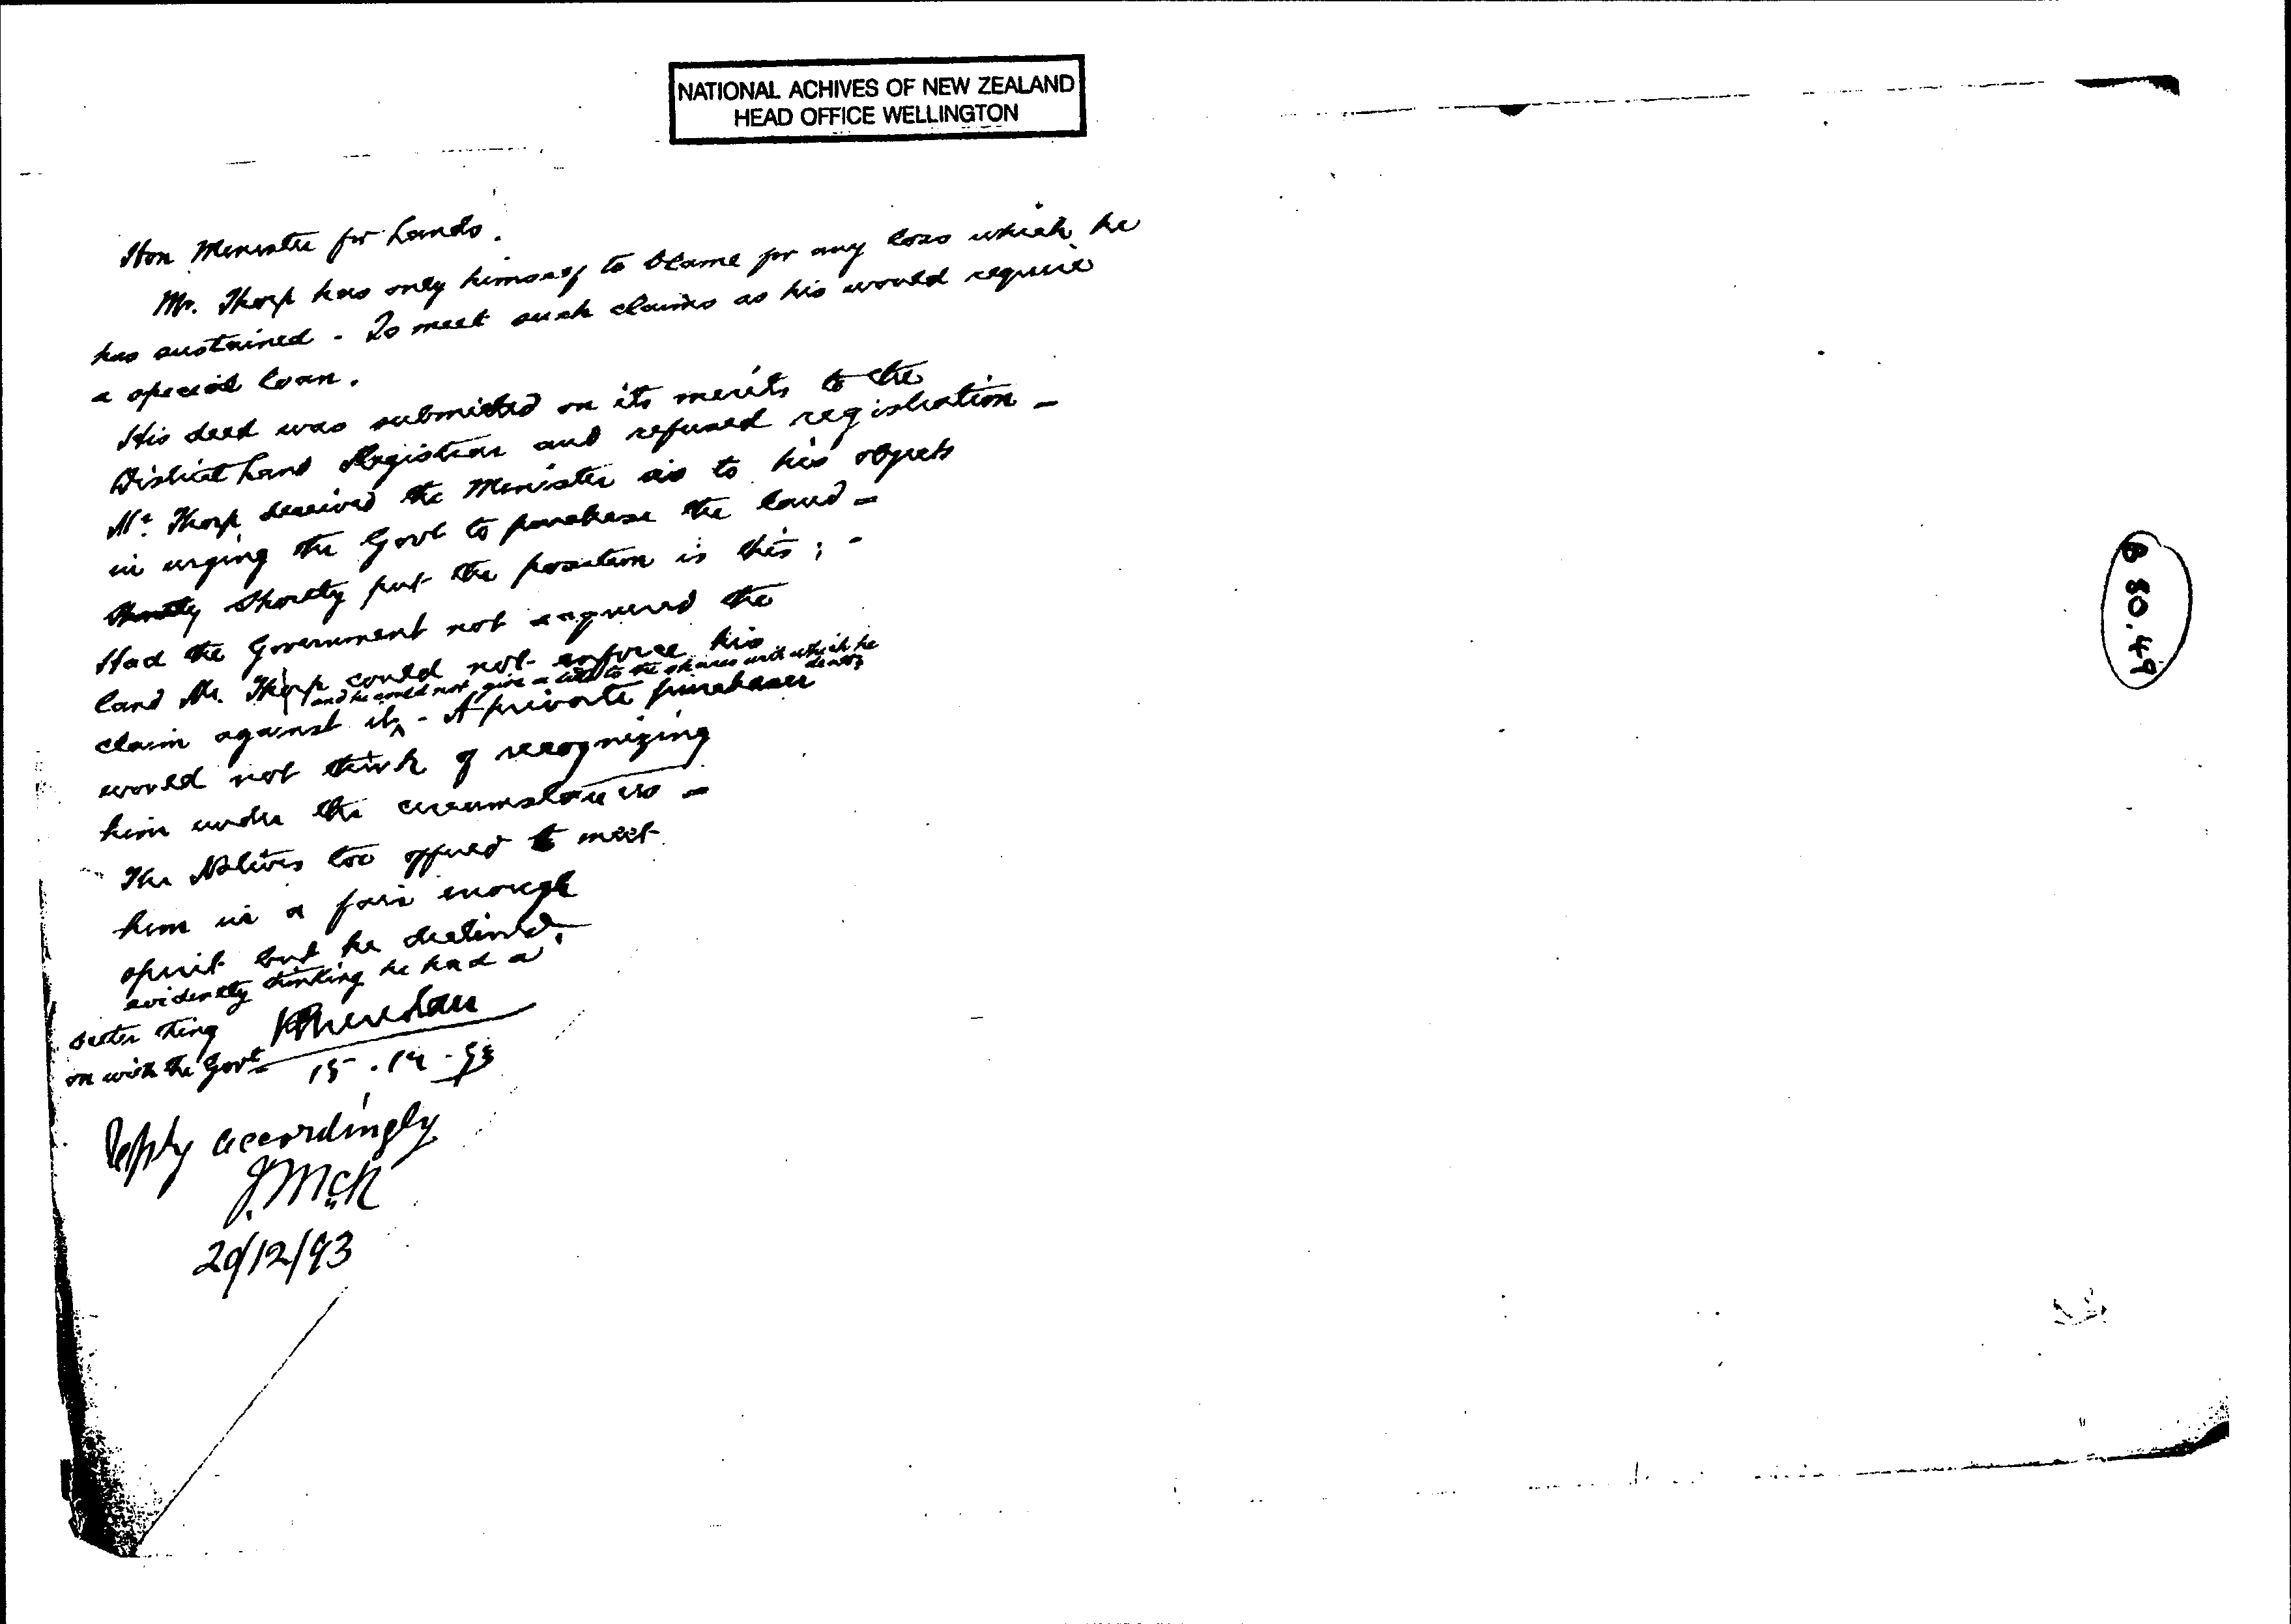 NATIONAL ACHIVES OF NEW ZEALAND
HEAD OFFICE WELLINGTON
Hon Minister for Lands.
Mr. Thorp has only himself to blame for any loss which he
has sustained - To meet such claims as his would require
a special loan.
His deed was submitted on its merits to the
District Land Registrar and refused registration -
Mr. Thorp deceived the Minister as to his objects
in urging the Govt to purchase the land -
Shortly put the position is this : -
Had the Government not acquired the
land Mr. Thorp could not enforce his
and he could not give a title to the shares with which he
claim against it - A private purchaser
would not think of recognizing
him under the circumstances -
The Natives too offered to meet
him in a fair enough
spirit but he declined,
evidently thinking he had a
better thing
on with the Govt
15.12.93
Reply accordingly
J.McK
20/12/93
B 80.49